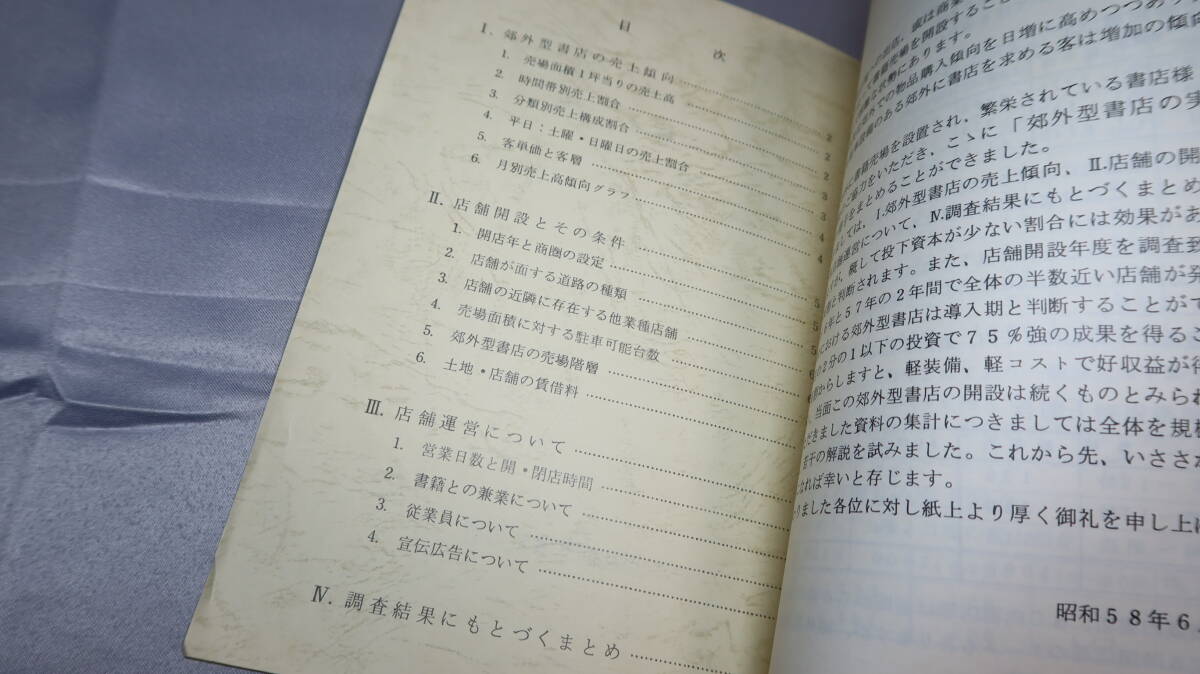 目　次
Ⅰ．郊外型書店の売上傾向
1. 売場面積1坪当りの売上高 2
2. 時間帯別売上割合 2
3. 分類別売上構成割合 2
4. 平日：土曜・日曜日の売上割合 3
5. 客単価と客層 3
6. 月別売上高傾向グラフ 4
Ⅱ．店舗開設とその条件 4
1. 開店年と商圏の設定 5
2. 店舗が面する道路の種類 5
3. 店舗の近隣に存在する他業種店舗 5
4. 売場面積に対する駐車可能台数
5. 郊外型書店の売場階層
6. 土地・店舗の賃借料
Ⅲ．店舗運営について
1. 営業日数と開・閉店時間
2. 書籍との兼業について
3. 従業員について
4. 宣伝広告について
Ⅳ．調査結果にもとづくまとめ
売場を開設すること
での物品購入傾向を日増に高めつつあり
のある郊外に書店を求める客は増加の傾向
売場を設置され、繁栄されている書店様
協力をいただき、こゝに「郊外型書店の実
をまとめることができました。
しては、Ⅰ.郊外型書店の売上傾向、Ⅱ.店舗の開
運営について、Ⅳ.調査結果にもとづくまとめ
概して投下資本が少ない割合には効果があ
と判断されます。また、店舗開設年度を調査致
年と57年の2年間で全体の半数近い店舗が発
における郊外型書店は導入期と判断することがで
の2分の1以下の投資で75%強の成果を得るこ
からしますと、軽装備、軽コストで好収益が得
当面この郊外型書店の開設は続くものとみられ
だきました資料の集計につきましては全体を規模
若干の解説を試みました。これから先、いささか
なれば幸いと存じます。
りました各位に対し紙上より厚く御礼を申し上げ
昭和58年6